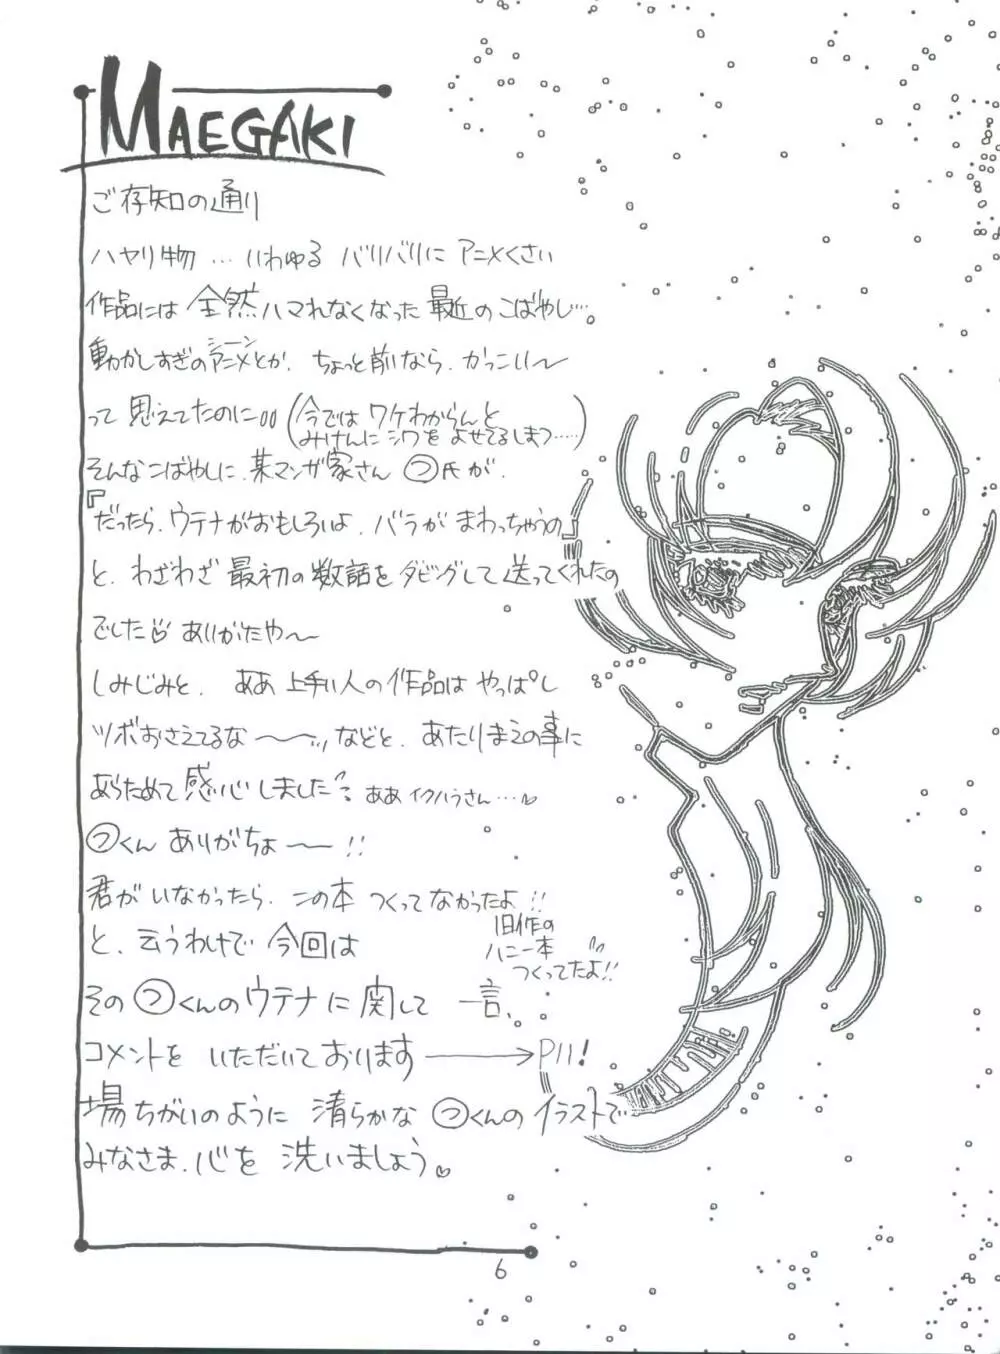 MAEGAKI
ご存知の通り
ハヤリ物…いわゆる バリバリに アニメくさい
作品には 全然ハマれなくなった 最近のこばやし…。
動かしすぎのアニメとか、ちょっと前なら、かっこいい〜
シーン
って 思えてたのに
(今では ワケわからんと
みけんに シワを よせてるしまつ‥‥)
そんなこばやしに、某マンガ家さん つ氏が、
『だったら、ウテナがおもしろいよ、バラがまわっちゃうの』
と、わざわざ 最初の数話を ダビングして 送ってくれたの
でした♡ ありがたや〜
しみじみと、ああ 上手い人の作品は やっぱし
ツボおさえてるな〜〜 などと、あたりまえの事に
あらためて 感心しました ああ イクハラさん…♡
つくん ありがちょ〜〜!!
君が いなかったら、この本 つくってなかったよ!!
旧作の
ハニー本
つくってたよ!!
と、云うわけで 今回は
その つくんのウテナに関して 一言、
コメントを いただいております → P11!
場ちがいのように 清らかな つくんの イラストで
みなさま、心を 洗いましょう。♡
6